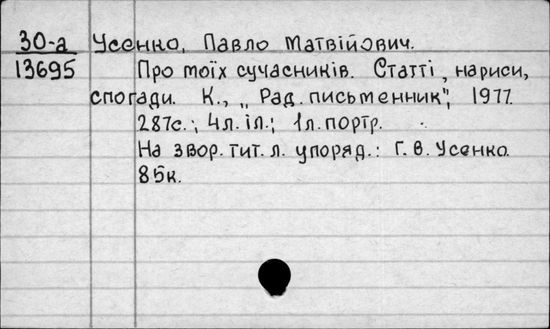 30-а Усенко, Павло Матвійович.
13695 Про моїх сучасників. Статті, нариси,
спогади. К., „Рад. письменник", 1977.
287с.; 4л.іл.; 1л.портр.
На звор. тит. л. упоряд.: Г. В. Усенко.
85к.